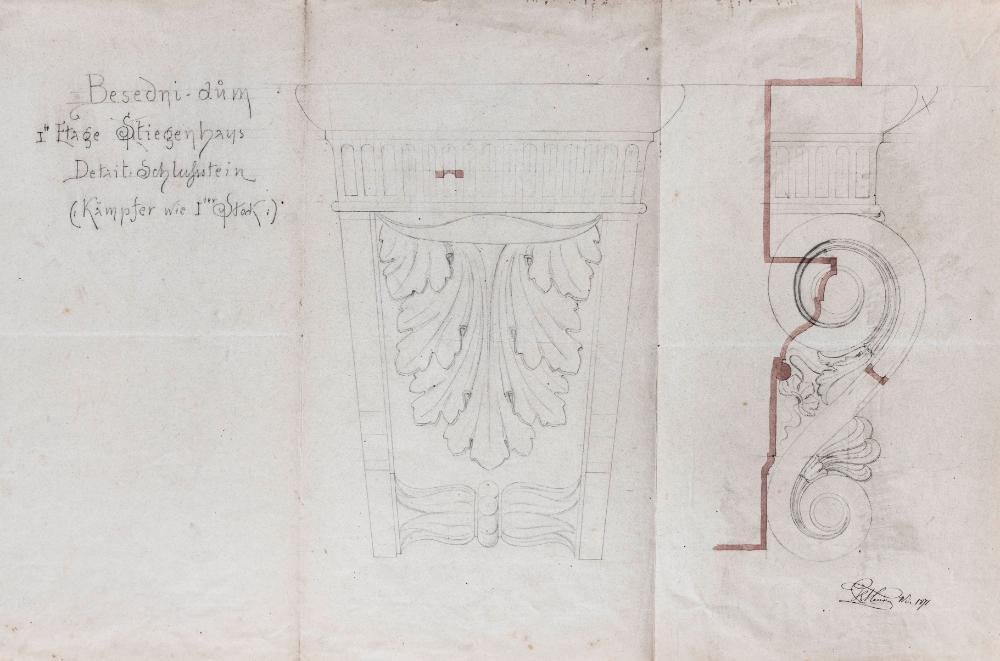 Besední-dům
Ite Etage Stiegenhaus
Detail-Schlußstein
(: Kämpfer wie Iter Stock :)
1871